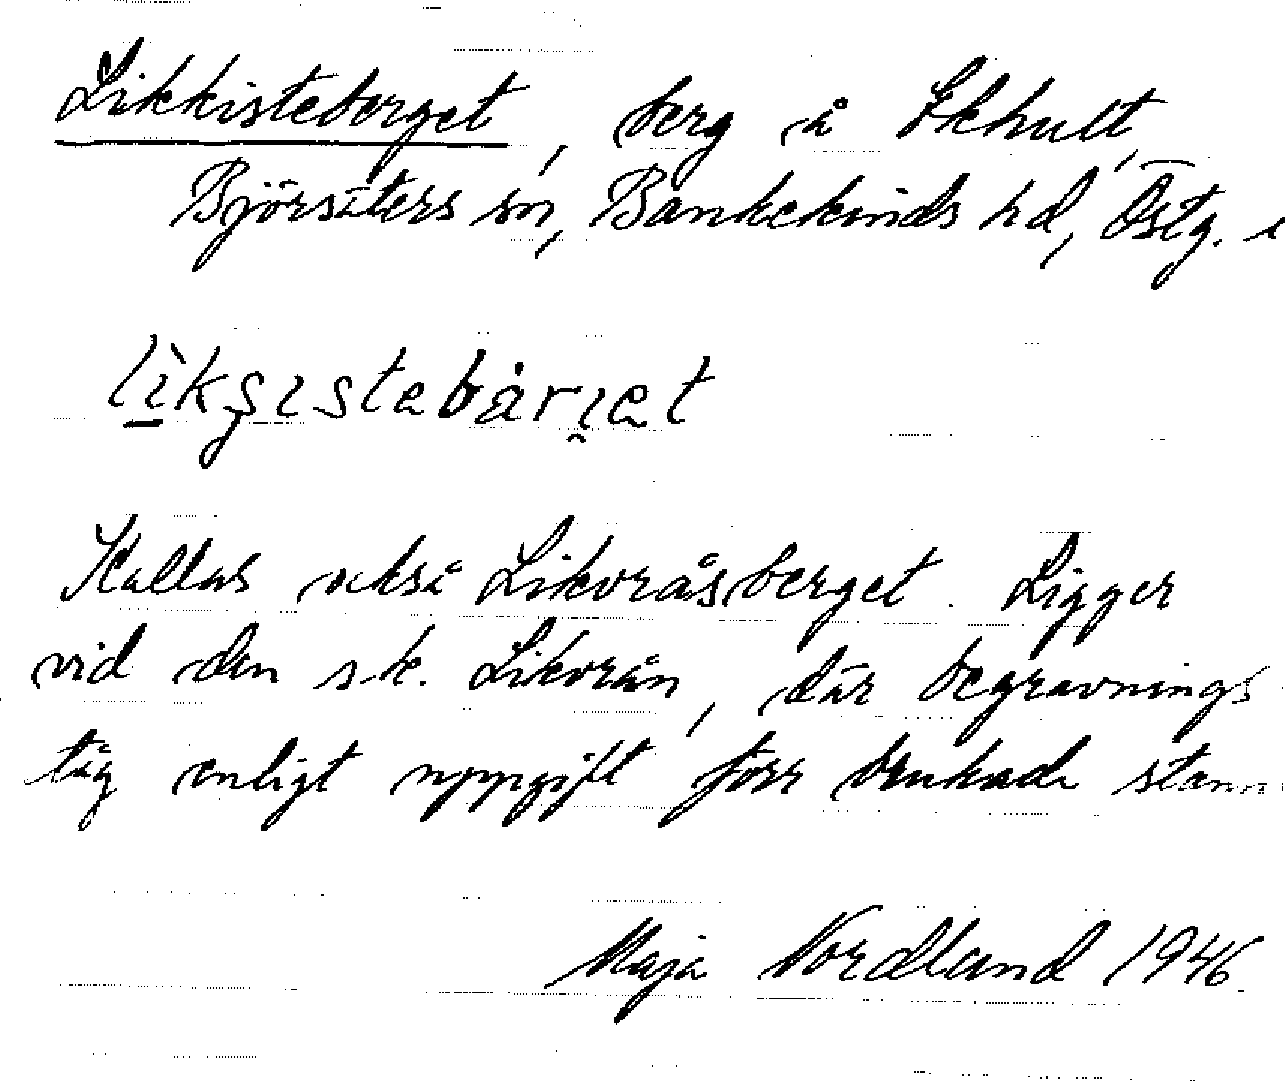 Likkisteberget, berg å Ekhult,
Björsäters sn, Bankekinds hd, Östg.
Kallas också Likvråsberget. Ligger
vid den s k. Likvrån, där begravnings
tåg enligt uppgift förr brukade stann
Maja Nordland 1946.